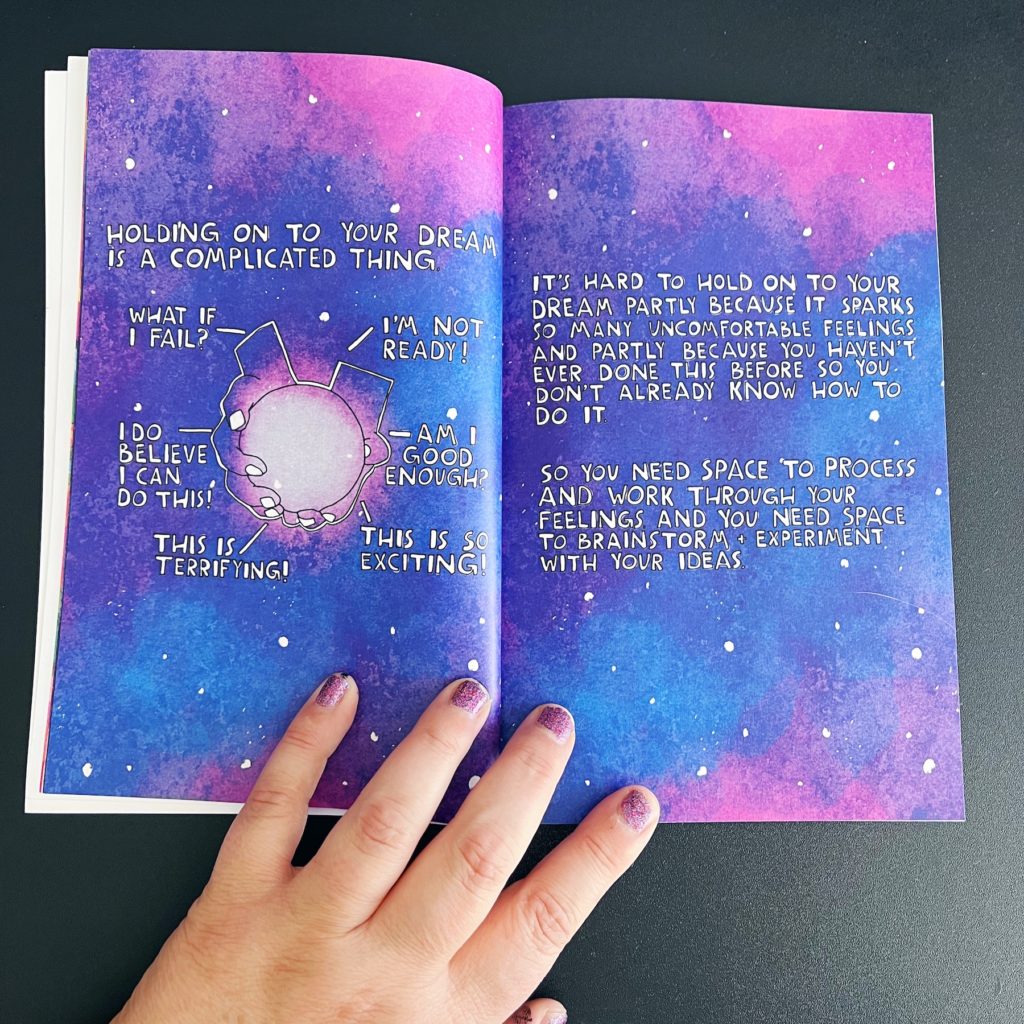 HOLDING ON TO YOUR DREAM
IS A COMPLICATED THING.
WHAT IF
I FAIL?
I'M NOT
READY!
I DO
BELIEVE
I CAN
DO THIS!
AM I
GOOD
ENOUGH?
THIS IS
TERRIFYING!
THIS IS SO
EXCITING!
IT'S HARD TO HOLD ON TO YOUR
DREAM PARTLY BECAUSE IT SPARKS
SO MANY UNCOMFORTABLE FEELINGS
AND PARTLY BECAUSE YOU HAVEN'T
EVER DONE THIS BEFORE SO YOU
DON'T ALREADY KNOW HOW TO
DO IT.
SO YOU NEED SPACE TO PROCESS
AND WORK THROUGH YOUR
FEELINGS AND YOU NEED SPACE
TO BRAINSTORM + EXPERIMENT
WITH YOUR IDEAS.